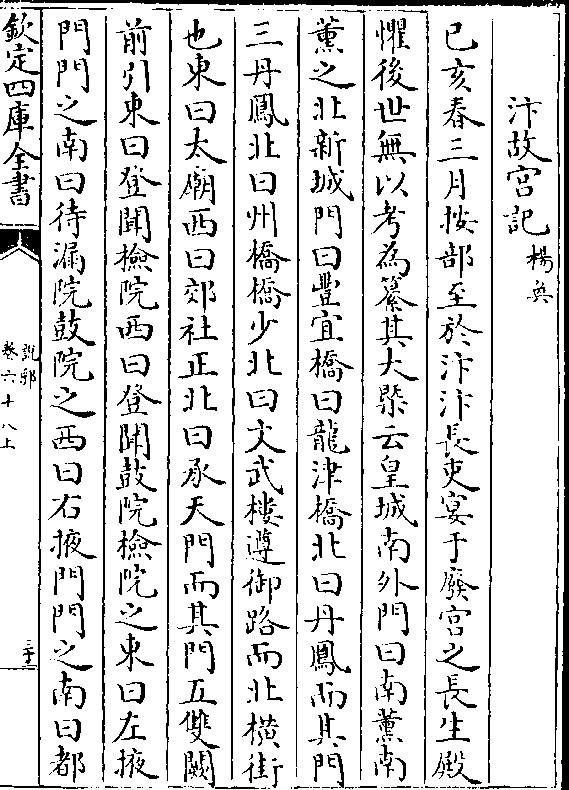 汴故宫記楊奐
已亥春三月按部至於汴汴長吏宴于廢宫之長生殿
懼後世無以考為纂其大槩云皇城南外門曰南薰南
薰之北新城門曰豐宜橋曰龍津橋北曰丹鳳而其門
三丹鳳北曰州橋橋少北曰文武樓遵御路而北横街
也東曰太廟西曰郊社正北曰承天門而其門五雙闕
前引東曰登聞檢院西曰登聞鼓院檢院之東曰左掖
門門之南曰待漏院鼓院之西曰右掖門門之南曰都
欽定四庫全書
說郛
卷六十八上
三十